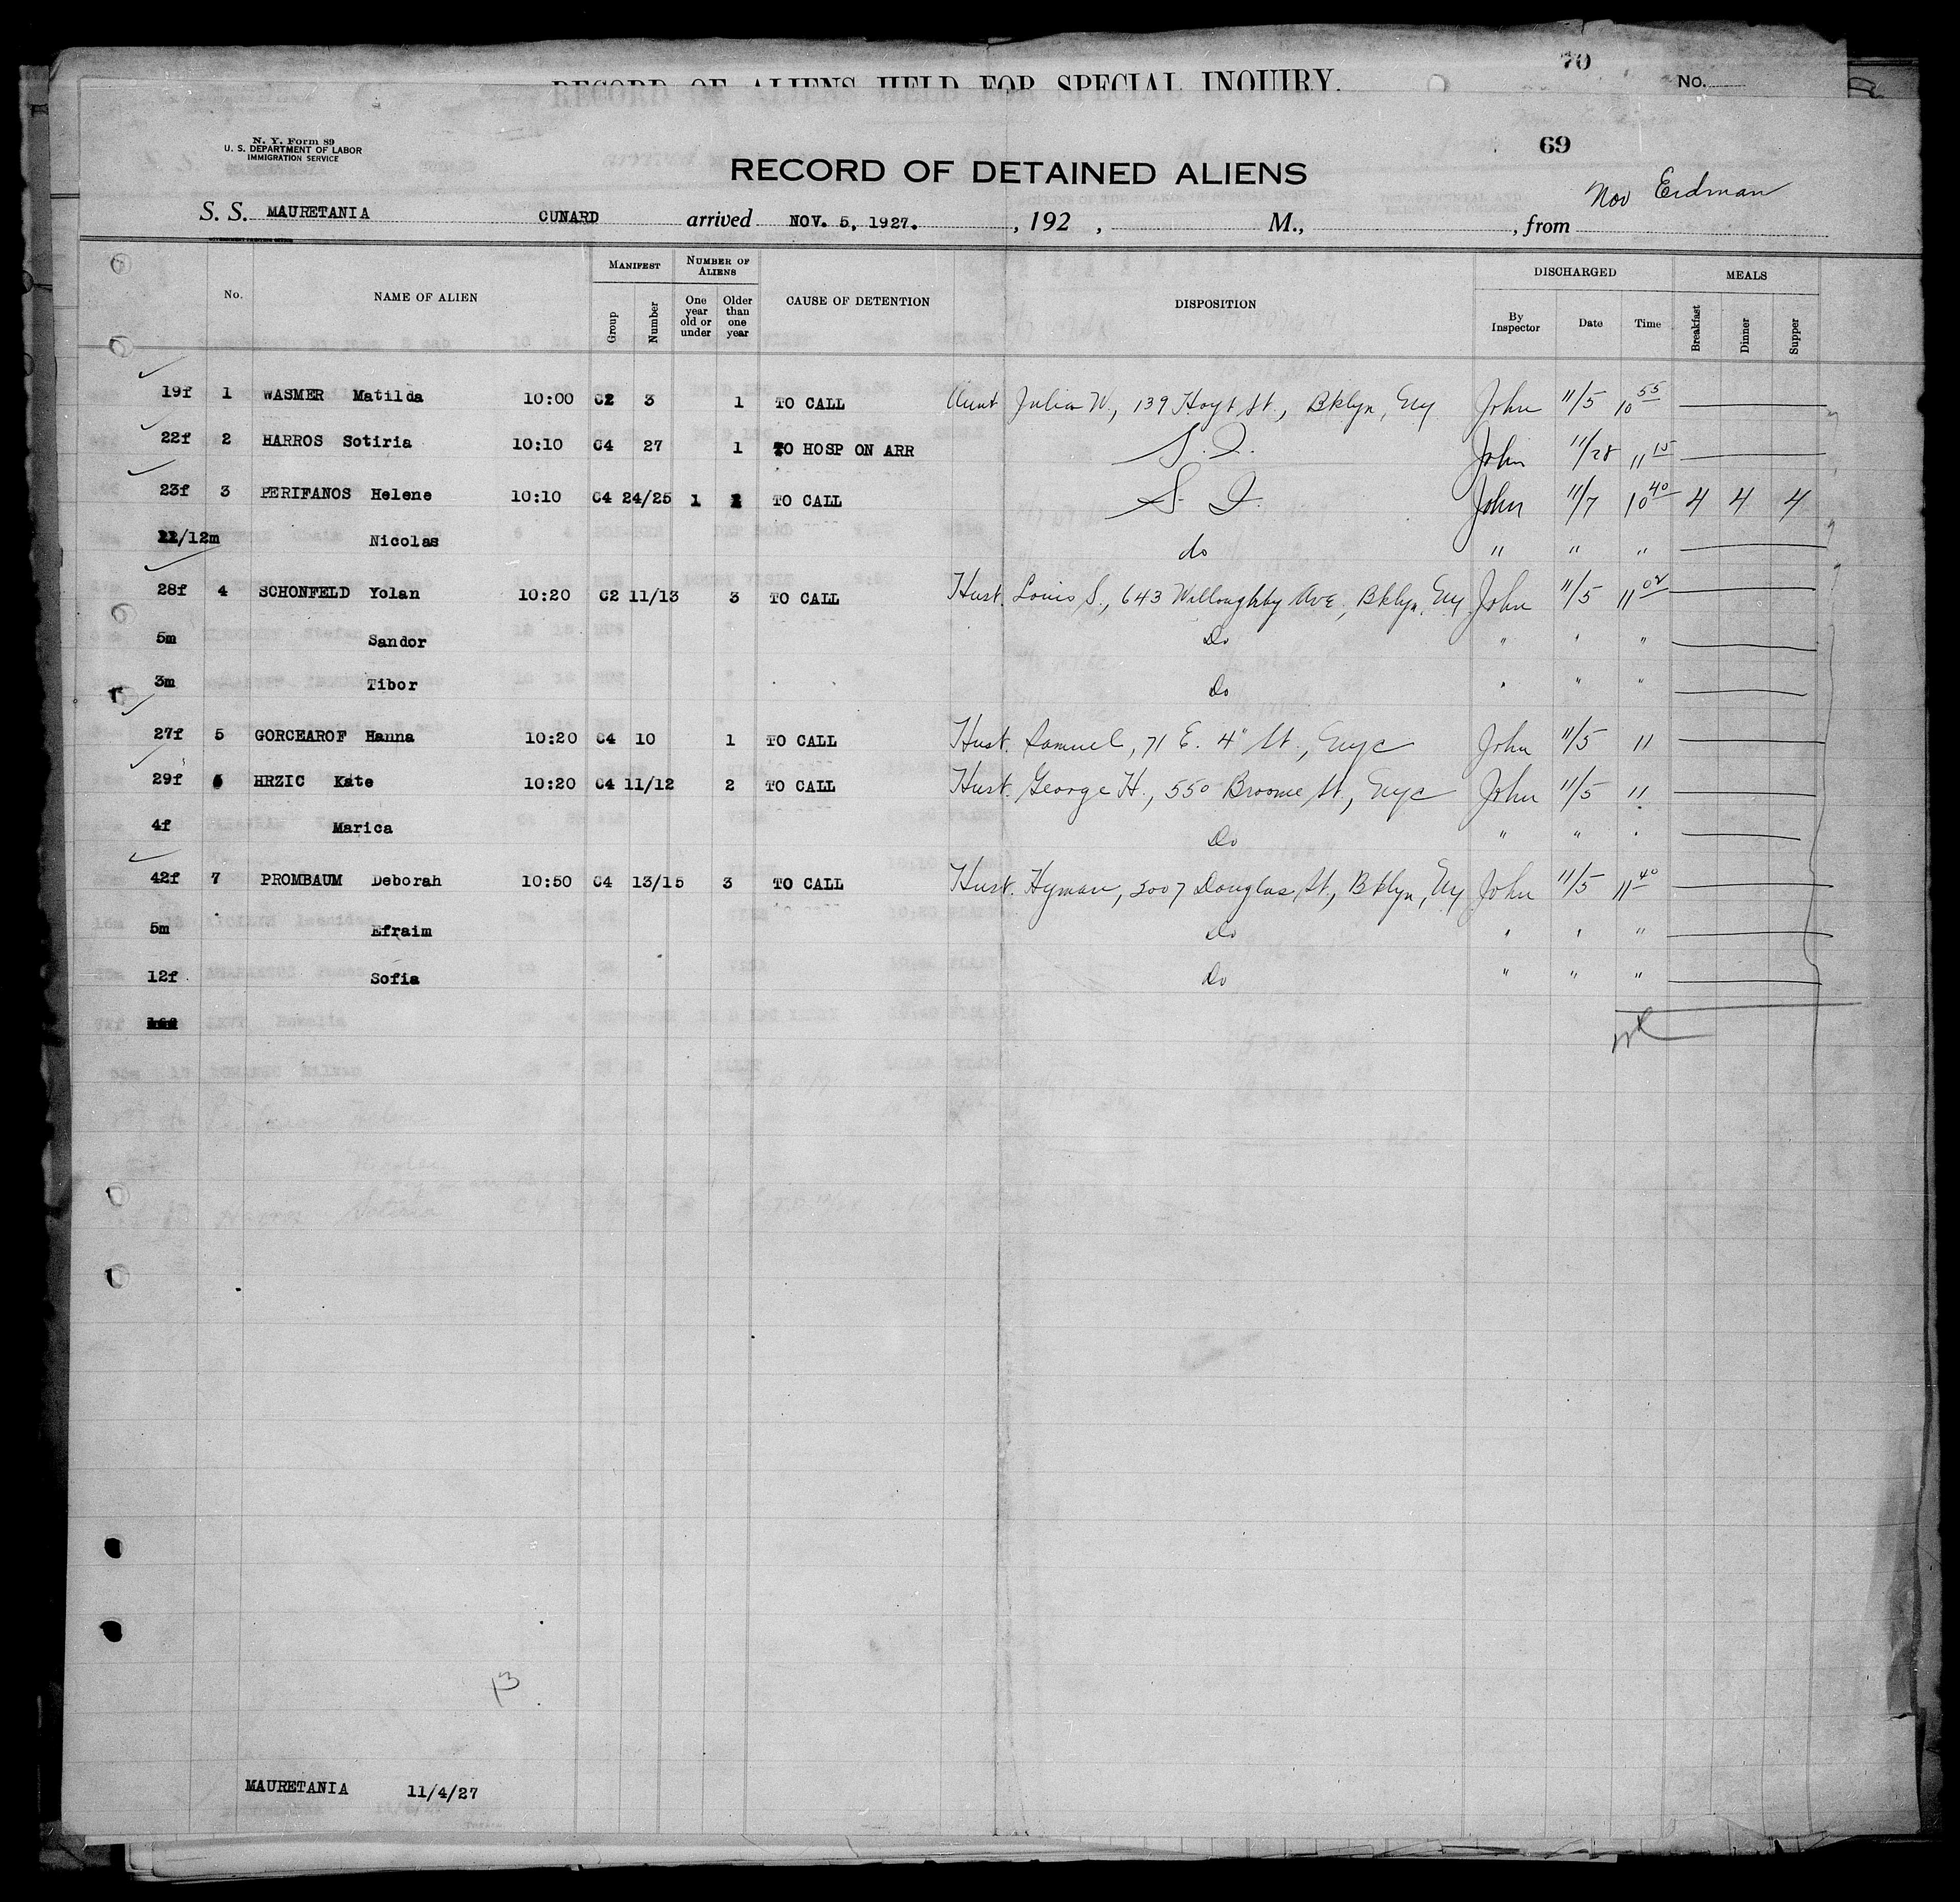 RECORD OF ALIENS HELD FOR SPECIAL INQUIRY.
70
No.
N. Y. Form 89
U. S. DEPARTMENT OF LABOR
IMMIGRATION SERVICE
69
RECORD OF DETAINED ALIENS
Nov Erdman
S. S. MAURETANIA CUNARD arrived NOV. 5, 1927. , 192 , M., , from
No. NAME OF ALIEN MANIFEST Group Number NUMBER OF ALIENS One year old or under Older than one year CAUSE OF DETENTION DISPOSITION DISCHARGED By Inspector Date Time MEALS Breakfast Dinner Supper
19f 1 WASMER Matilda 10:00 C2 3 1 TO CALL Aunt Julia W., 139 Hoyt St., Bklyn, Ny John 11/5 10 55
22f 2 HARROS Sotiria 10:10 C4 27 1 TO HOSP ON ARR S. I. John 11/28 11 15
23f 3 PERIFANOS Helene 10:10 C4 24/25 1 1 TO CALL S. I. John 11/7 10 40 4 4 4
11/12m Nicolas do " " "
28f 4 SCHONFELD Yolan 10:20 C2 11/13 3 TO CALL Husb. Louis S., 643 Willoughby Ave, Bklyn, Ny John 11/5 11 02
5m Sandor Do " " "
3m Tibor Do " " "
27f 5 GORCEAROF Hanna 10:20 C4 10 1 TO CALL Husb. Samuel, 71 E. 4" St., Nyc John 11/5 11
29f 6 HRZIC Kate 10:20 C4 11/12 2 TO CALL Husb. George H., 550 Broome St, Nyc John 11/5 11
4f Marica Do " " "
42f 7 PROMBAUM Deborah 10:50 C4 13/15 3 TO CALL Husb. Hyman, 2007 Douglas St., Bklyn, Ny John 11/5 11 40
5m Efraim Do " " "
12f Sofia Do " " "
13
MAURETANIA 11/4/27